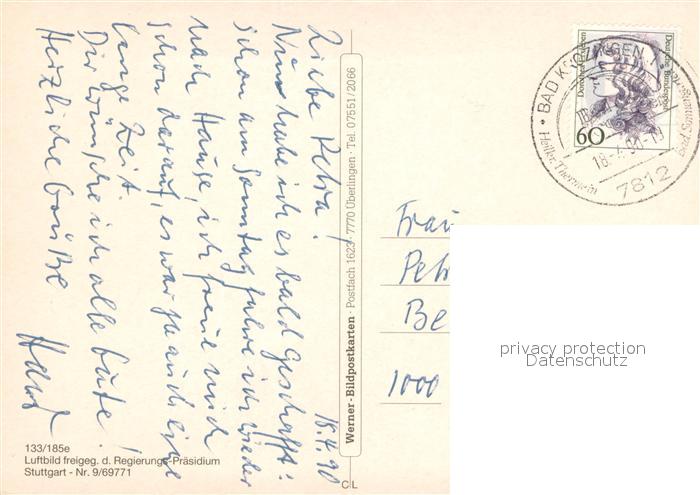 18.4.90
Liebe Petra!
Nun habe ich es bald geschafft:
schon am Sonntag fahre ich wieder
nach Hause, ich freue mich
schon darauf, es war ja auch eine
lange Zeit.
Dir wünsche ich alle Gute!
Herzliche Grüße
133/185e
Luftbild freigeg. d. Regierungs-Präsidium
Stuttgart - Nr. 9/69771
Werner-Bildpostkarten · Postfach 1623 · 7770 Überlingen · Tel. 07551/2066
C L
Deutsche Bundespost
60
BAD KROZINGEN 1
7812
Frau
Petr
Be
1000
privacy protection
Datenschutz